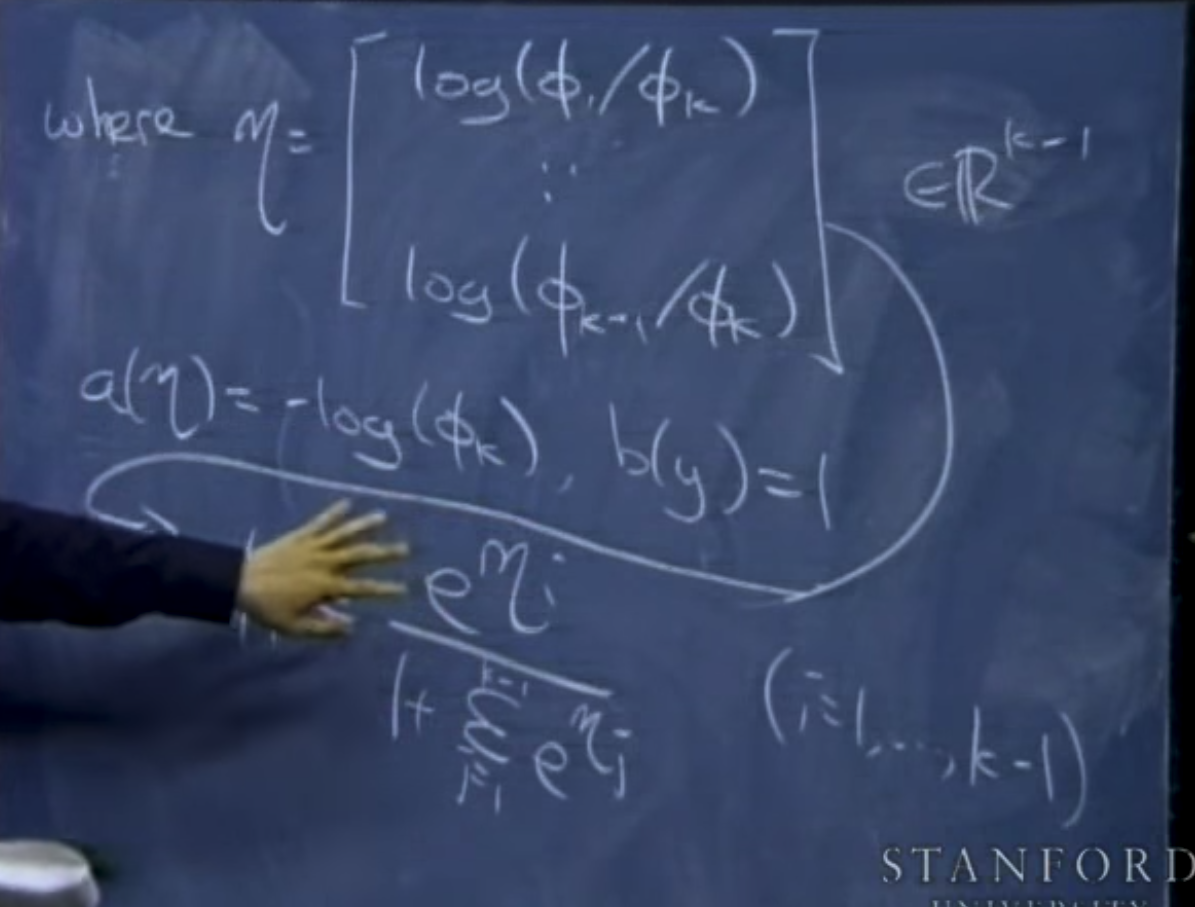 where η = [ log(φ₁/φₖ)
⋮
log(φₖ₋₁/φₖ) ] ∈ ℝᵏ⁻¹
a(η) = -log(φₖ), b(y) = 1
e^ηᵢ
1 + Σ_{j=1}^{k-1} e^ηⱼ (i=1,...,k-1)
STANFORD
UNIVERSITY